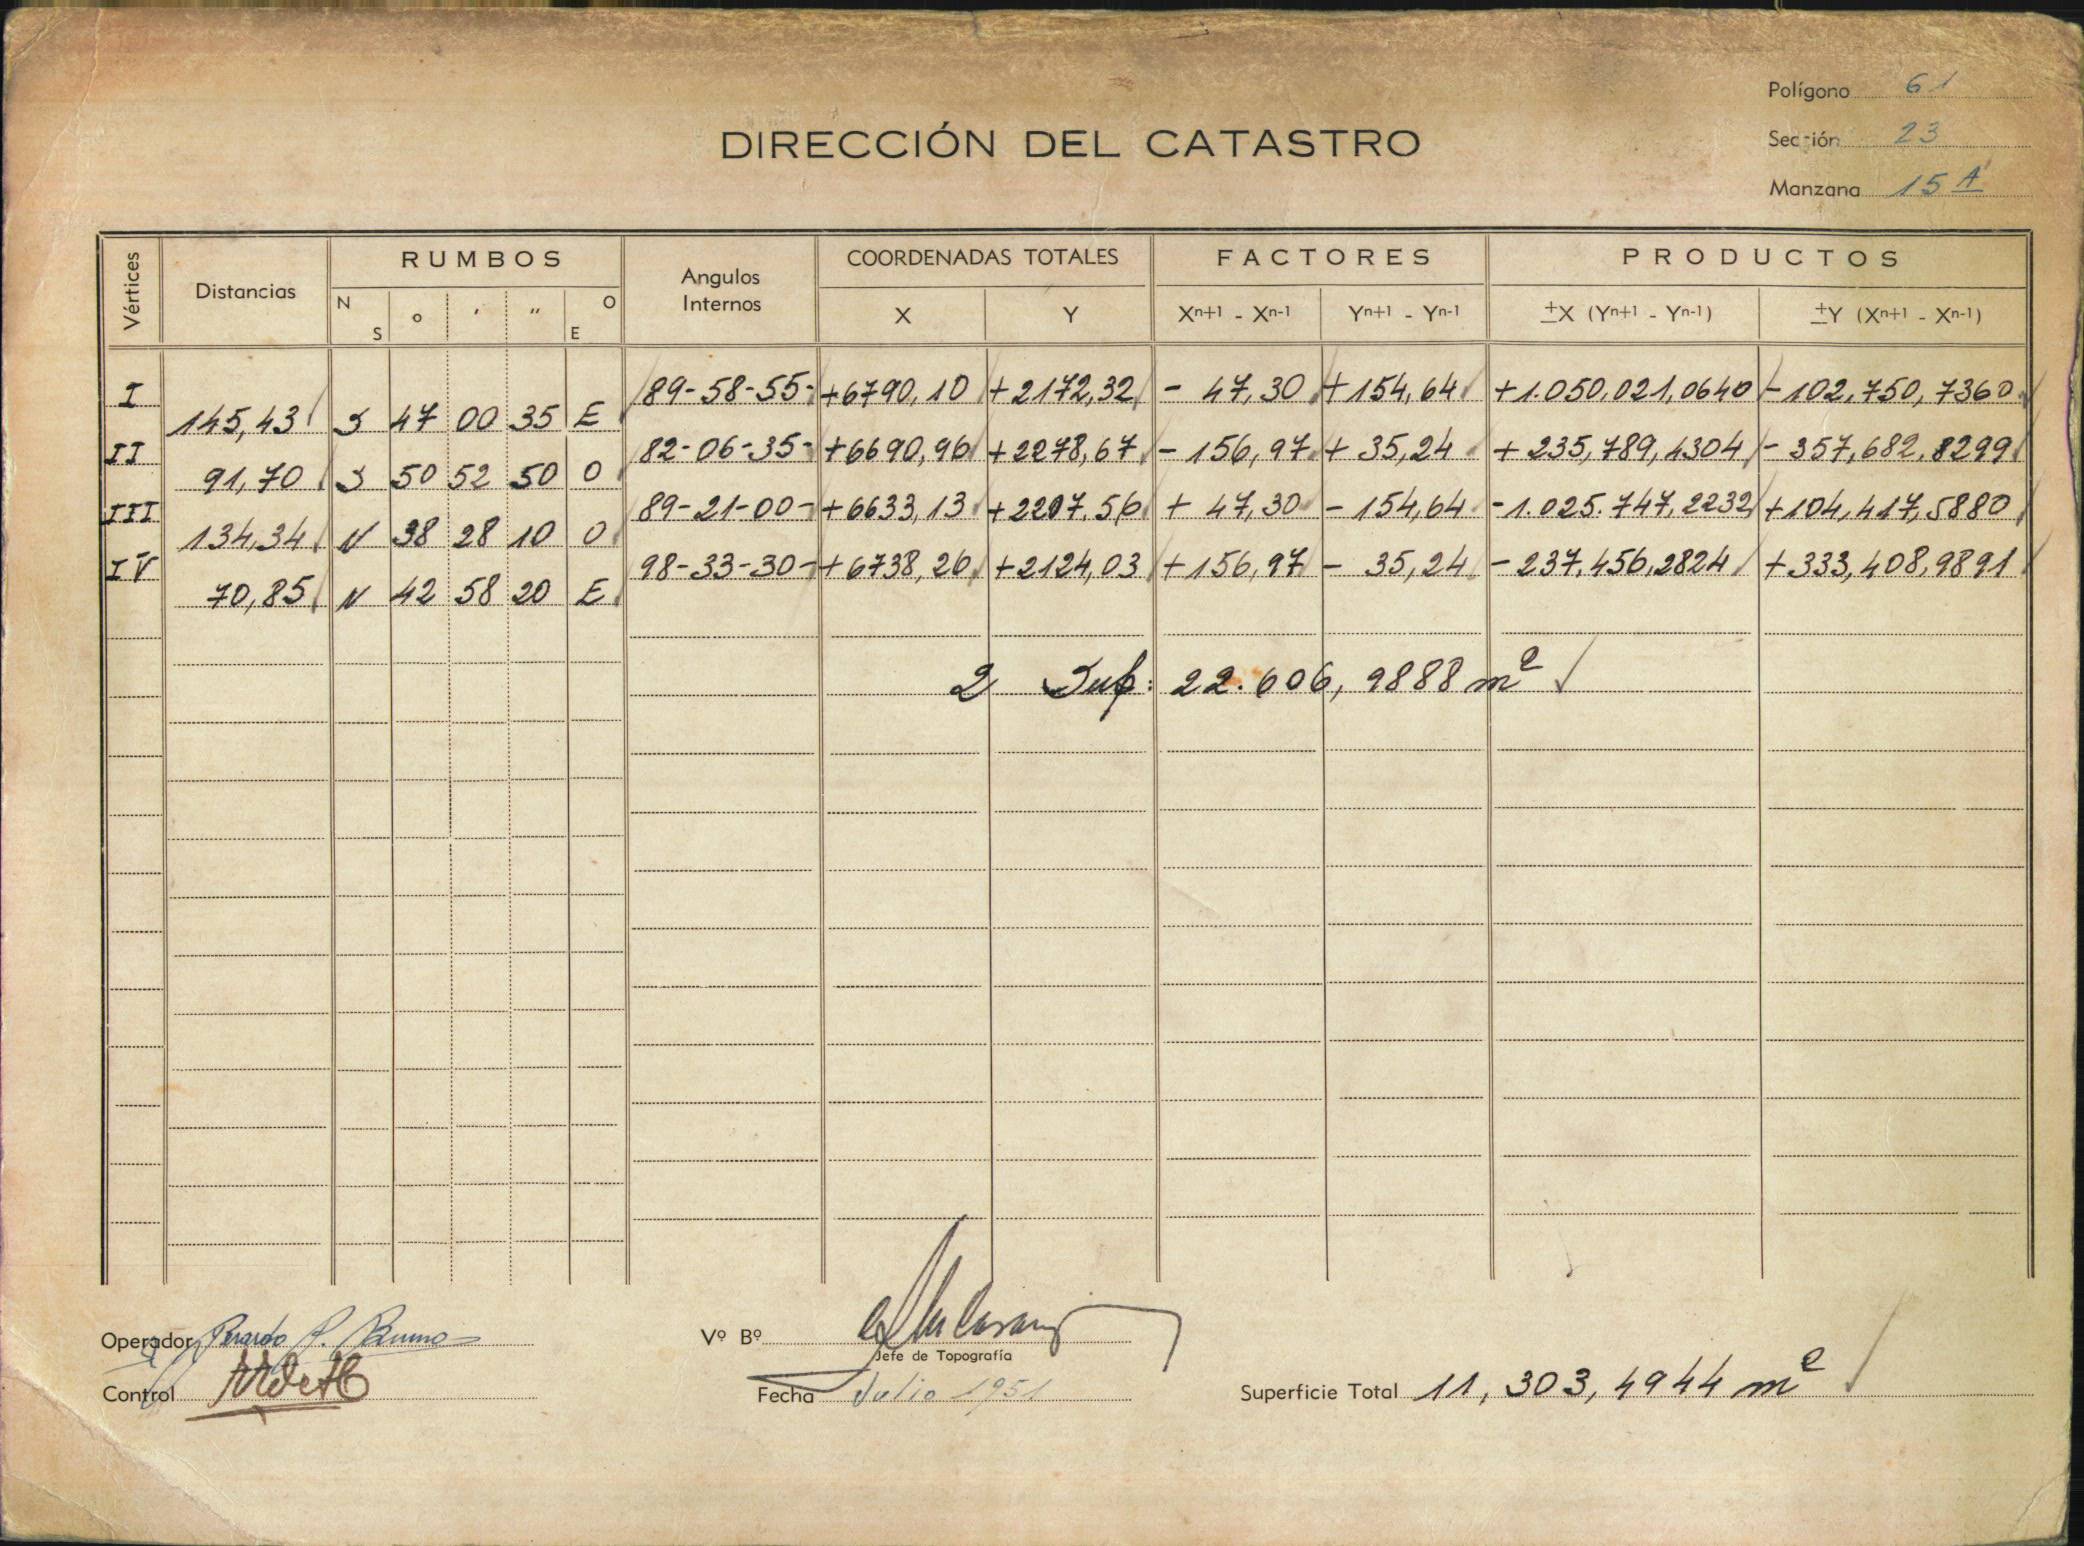 Polígono 61
DIRECCIÓN DEL CATASTRO
Sección 23
Manzana 15 A
Vértices Distancias RUMBOS Angulos Internos COORDENADAS TOTALES FACTORES PRODUCTOS
N S o ' " O E X Y Xn+1 - Xn-1 Yn+1 - Yn-1 ±X (Yn+1 - Yn-1) ±Y (Xn+1 - Xn-1)
I 89-58-55- +6790,10 +2172,32 - 47,30 +154,64 +1.050.021,0640 -102,750,7360
145,43 S 47 00 35 E
II 82-06-35- +6690,96 +2278,67 - 156,97 + 35,24 + 235,789,4304 - 357,682,8299
91,70 S 50 52 50 O
III 89-21-00- +6633,13 +2207,56 + 47,30 - 154,64 -1.025.747,2232 +104,417,5880
134,34 N 38 28 10 O
IV 98-33-30- +6738,26 +2124,03 +156,97 - 35,24 -237.456,2824 +333,408,9891
70,85 N 42 58 20 E
2 Sup: 22.606,9888 m²
Operador
Vº Bº
Jefe de Topografía
Control
Fecha Julio 1951
Superficie Total 11,303,4944 m²